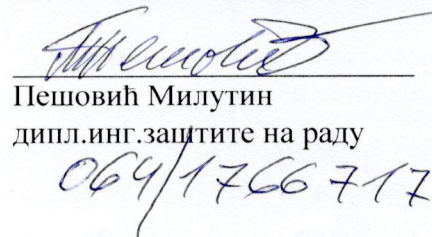 Пешовић
Пешовић Милутин
дипл.инг.заштите на раду
064/1766717